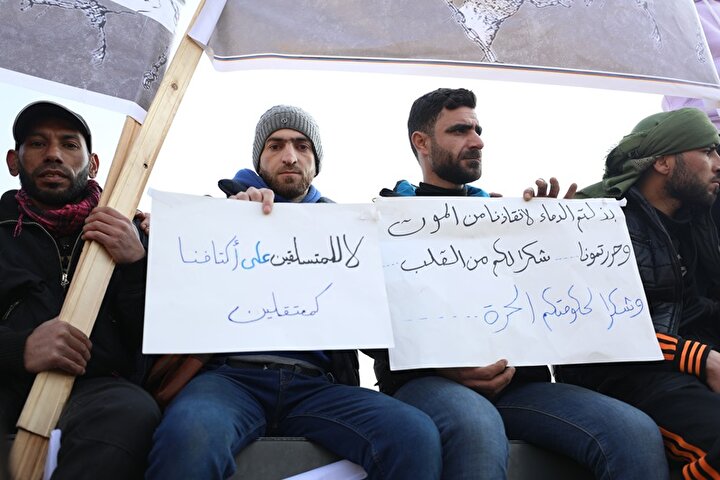 لا للمتسلقين على أكتافنا
كمعتقلين
بذلتم الدماء لانقاذنا من الموت
وحررتمونا .... شكرا لكم من القلب ...
وشكرا لحكومتكم الحرة .......